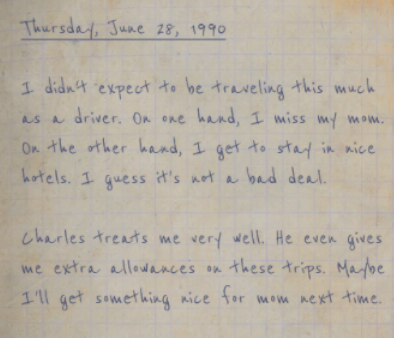 Thursday, June 28, 1990
I didn't expect to be traveling this much
as a driver. On one hand, I miss my mom.
On the other hand, I get to stay in nice
hotels. I guess it's not a bad deal.
Charles treats me very well. He even gives
me extra allowances on these trips. Maybe
I'll get something nice for mom next time.